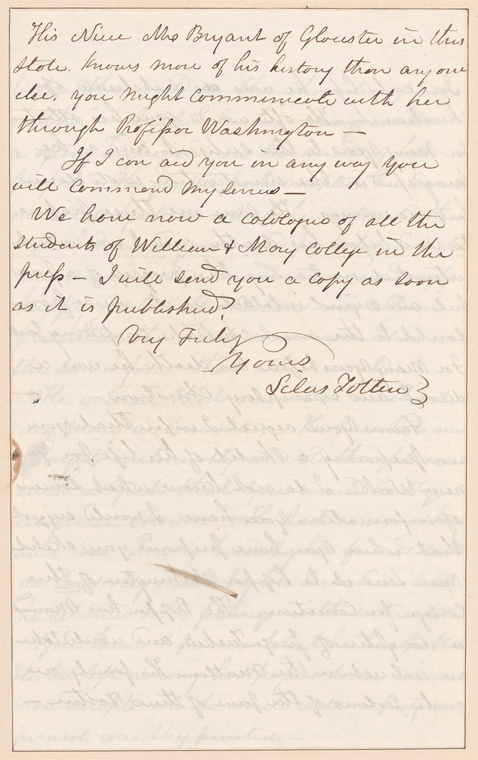 His Niece Mrs Bryant of Gloucester in this
State. Knows more of his history than anyone
else, you might communicate with her
through Professor Washington —
If I can aid you in any way you
will command my services —
We have now a catalogue of all the
students of William & Mary College in the
press — I will send you a copy as soon
as it is published.
Very Truly
Yours
Silas Totten